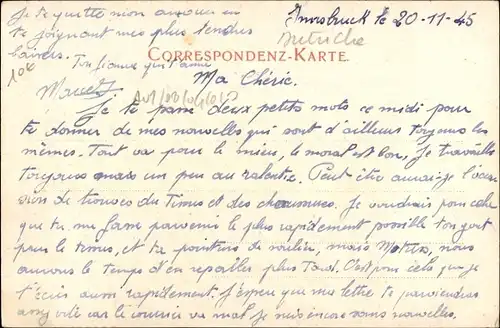 Je te quitte mon amour en
te joignant mes plus tendres
baisers.
Ton fiancé qui t'aime
Marcel
10€
Innsbruck le 20-11-45
Autriche
CORRESPONDENZ-KARTE.
Ma Chérie.
Je te passe deux petits mots ce midi pour
te donner de mes nouvelles qui sont d'ailleurs toujours les
mêmes. Tout va pour le mieux, le moral est bon, je travaille
toujours mais un peu au ralentie. Peut être aurai-je l'occa
sion de trouver du Tissus et des chaussures. Je voudrais pour cela
que tu me fasse parvenir le plus rapidement possible ton gout
pour le tissus, et ta pointure de soulier, mais nous
aurons le temps d'en reparler plus Tard. C'est pour cela que je
t'écris aussi rapidement. J'espère que ma lettre te parviendras
assez vite car le courrier va mal je suis encore sans nouvelles.